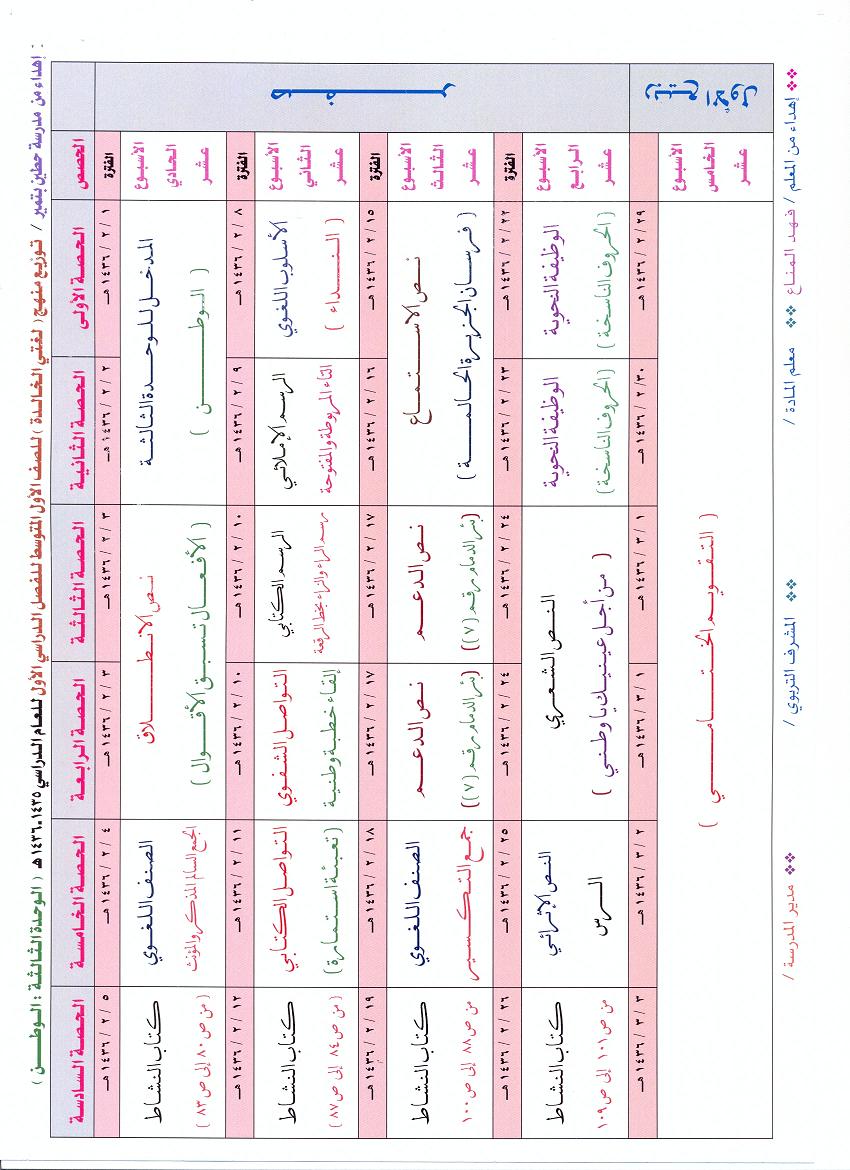 إهداء من مدرسة حطين بتمير / توزيع منهج ( لغتي الخالدة ) للصف الأول المتوسط للفصل الدراسي الأول للعام الدراسي ١٤٣٥ـ١٤٣٦ هـ ( الوحدة الثالثة : الوطن )
الحصص الحصة الأولى الحصة الثانية الحصة الثالثة الحصة الرابعة الحصة الخامسة الحصة السادسة
صفر
الفترة ١ / ٢ / ١٤٣٦ هـ ٢ / ٢ / ١٤٣٦ هـ ٣ / ٢ / ١٤٣٦ هـ ٣ / ٢ / ١٤٣٦ هـ ٤ / ٢ / ١٤٣٦ هـ ٥ / ٢ / ١٤٣٦ هـ
الأسبوع الحادي عشر
المدخل للوحدة الثالثة
( الوطن )
نص الانطلاق
( الأفعال تسبق الأقوال )
الصنف اللغوي
الجمع السالم المذكر والمؤنث
كتاب النشاط
( من ص ٨٠ إلى ص ٨٣ )
الفترة ٨ / ٢ / ١٤٣٦ هـ ٩ / ٢ / ١٤٣٦ هـ ١٠ / ٢ / ١٤٣٦ هـ ١٠ / ٢ / ١٤٣٦ هـ ١١ / ٢ / ١٤٣٦ هـ ١٢ / ٢ / ١٤٣٦ هـ
الأسبوع الثاني عشر
الأسلوب اللغوي
( النداء )
الرسم الإملائي
التاء المربوطة والمفتوحة
الرسم الكتابي
رسم الراء والزاء بخط الرقعة
التواصل الشفوي
إلقاء خطبة وطنية
التواصل الكتابي
( تعبئة استمارة )
كتاب النشاط
( من ص ٨٤ إلى ص ٨٧ )
الفترة ١٥ / ٢ / ١٤٣٦ هـ ١٦ / ٢ / ١٤٣٦ هـ ١٧ / ٢ / ١٤٣٦ هـ ١٧ / ٢ / ١٤٣٦ هـ ١٨ / ٢ / ١٤٣٦ هـ ١٩ / ٢ / ١٤٣٦ هـ
الأسبوع الثالث عشر
نص الاستماع
( فرسان الجزيرة الحالمة )
نص الدعم
(بئر الدمام رقم (٧))
نص الدعم
(بئر الدمام رقم (٧))
الصنف اللغوي
جمع التكسير
كتاب النشاط
من ص ٨٨ إلى ص ١٠٠
الفترة ٢٢ / ٢ / ١٤٣٦ هـ ٢٣ / ٢ / ١٤٣٦ هـ ٢٤ / ٢ / ١٤٣٦ هـ ٢٤ / ٢ / ١٤٣٦ هـ ٢٥ / ٢ / ١٤٣٦ هـ ٢٦ / ٢ / ١٤٣٦ هـ
الأسبوع الرابع عشر
الوظيفة النحوية
( الحروف الناسخة )
الوظيفة النحوية
( الحروف الناسخة )
النص الشعري
( من أجل عينيك يا وطني )
النص الإثرائي
الرس
كتاب النشاط
من ص ١٠١ إلى ص ١٠٩
ربيع الأول
٢٩ / ٢ / ١٤٣٦ هـ ٣٠ / ٢ / ١٤٣٦ هـ ١ / ٣ / ١٤٣٦ هـ ١ / ٣ / ١٤٣٦ هـ ٢ / ٣ / ١٤٣٦ هـ ٣ / ٣ / ١٤٣٦ هـ
الأسبوع الخامس عشر
( التقويم الختامي )
إهداء من المعلم / فهد المناع معلم المادة / المشرف التربوي / مدير المدرسة /